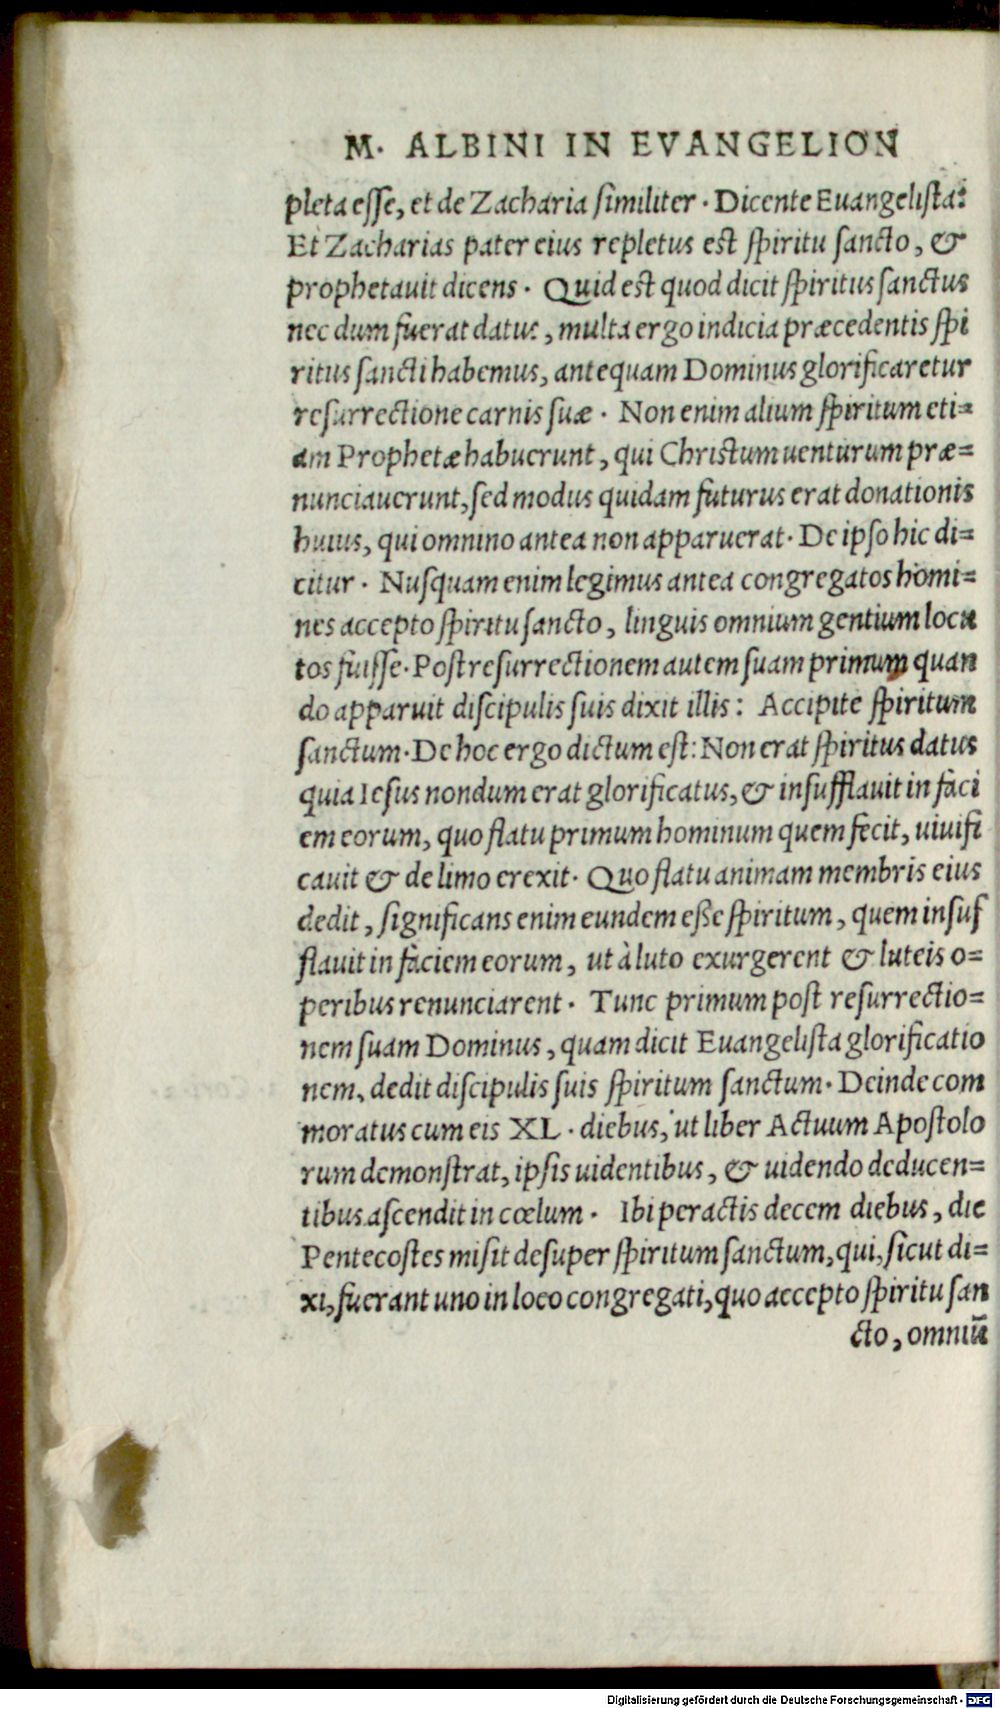 M. ALBINI IN EVANGELION
pleta esse, et de Zacharia similiter. Dicente Euangelista:
Et Zacharias pater eius repletus est spiritu sancto, &
prophetauit dicens. Quid est quod dicit spiritus sanctus
nec dum fuerat datus, multa ergo indicia præcedentis spi
ritus sancti habemus, antequam Dominus glorificaretur
resurrectione carnis suæ. Non enim alium spiritum eti=
am Prophetæ habuerunt, qui Christum uenturum præ=
nunciauerunt, sed modus quidam futurus erat donationis
huius, qui omnino antea non apparuerat. De ipso hic di=
citur. Nusquam enim legimus antea congregatos homi=
nes accepto spiritu sancto, linguis omnium gentium locu
tos fuisse. Post resurrectionem autem suam primum quan
do apparuit discipulis suis dixit illis: Accipite spiritum
sanctum. De hoc ergo dictum est: Non erat spiritus datus
quia Iesus nondum erat glorificatus, & insufflauit in faci
em eorum, quo flatu primum hominum quem fecit, uiuifi
cauit & de limo erexit. Quo flatu animam membris eius
dedit, significans enim eundem esse spiritum, quem insuf
flauit in faciem eorum, ut à luto exurgerent & luteis o=
peribus renunciarent. Tunc primum post resurrectio=
nem suam Dominus, quam dicit Euangelista glorificatio
nem, dedit discipulis suis spiritum sanctum. Deinde com
moratus cum eis XL. diebus, ut liber Actuum Apostolo
rum demonstrat, ipsis uidentibus, & uidendo deducen=
tibus ascendit in cœlum. Ibi peractis decem diebus, die
Pentecostes misit desuper spiritum sanctum, qui, sicut di=
xi, fuerant uno in loco congregati, quo accepto spiritu san
cto, omniū
Digitalisierung gefördert durch die Deutsche Forschungsgemeinschaft - DFG